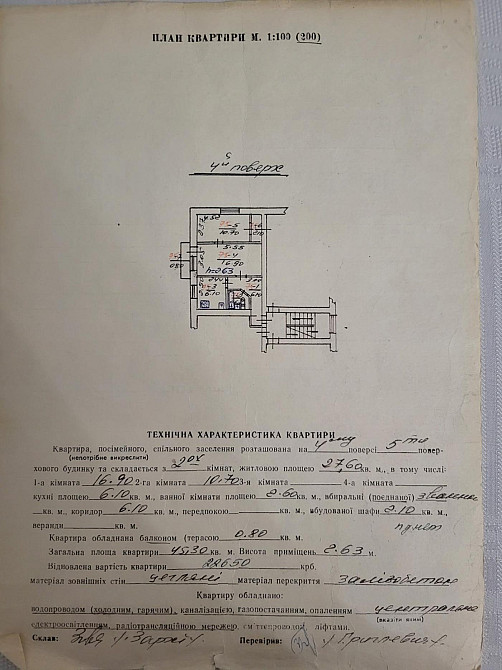 ПЛАН КВАРТИРИ М. 1:100 (200)
4й поверх
4.50
75-5
10.70
2.10
5.55
75-4
16.90
h=2.63
0.80
2.40
6.10
6.10
ТЕХНІЧНА ХАРАКТЕРИСТИКА КВАРТИРИ
Квартира, посімейного, спільного заселення розташована на 4му поверсі 5ти повер-
(непотрібне викреслити)
хового будинку та складається з 2ох кімнат, житловою площею 27,60 кв. м., в тому числі:
1-а кімната 16.90 2-га кімната 10.70 3-я кімната 4-а кімната
кухні площею 6.10 кв. м., ванної кімнати площею 2.60 кв. м., вбиральні (поєднаної)
кв. м., коридор 6.10 кв. м., передпокою кв. м., вбудованої шафи 2.10 кв. м.,
веранди кв. м.
Квартира обладнана балконом (терасою) 0.80 кв. м.
Загальна площа квартири 45,30 кв. м. Висота приміщень 2.63 м.
Відновлена вартість квартири 22650 крб.
матеріал зовнішніх стін цегляні матеріал перекриття залізобетон
Квартиру обладнано:
водопроводом (холодним, гарячим), каналізацією, газопостачанням, опаленням центральне
(вказати яким)
електроосвітленням, радіотрансляційною мережею, сміттєпроводом, ліфтами.
Склав: Перевірив: